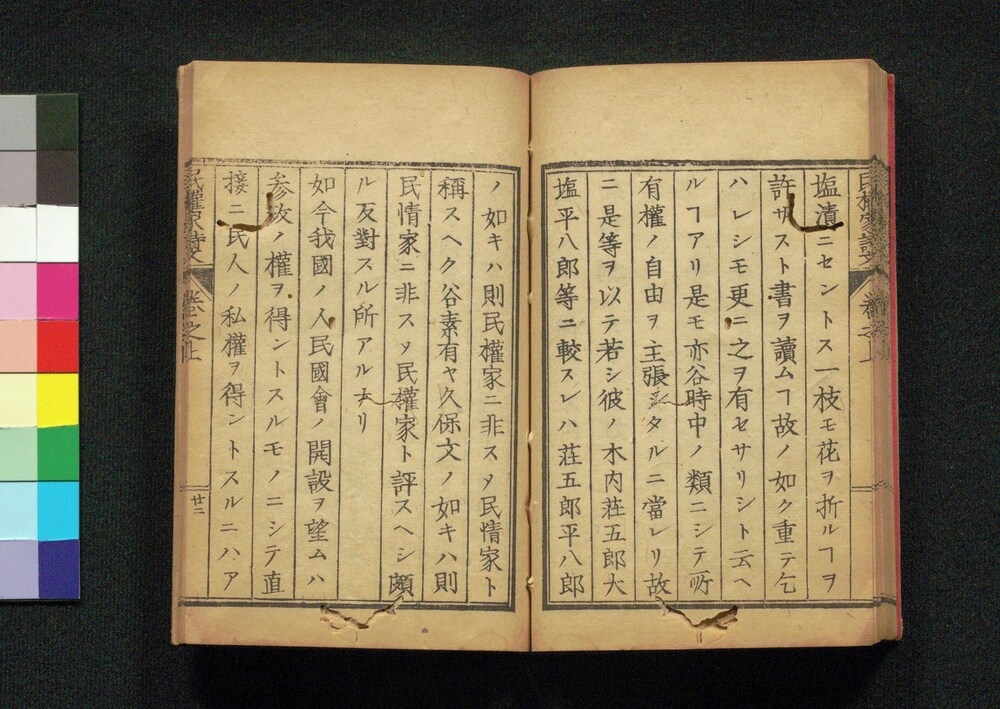 塩漬ニセントス一枝モ花ヲ折ルヿヲ
許サスト書ヲ讀ムヿ故ノ如ク重テ乞
ハレシモ更ニ之ヲ有セサリシト云ヘ
ルヿアリ是モ亦谷時中ノ類ニシテ所
有權ノ自由ヲ主張シタルニ當レリ故
ニ是等ヲ以テ若シ彼ノ木内荘五郎大
塩平八郎等ニ較スレハ荘五郎平八郎
ノ如キハ則民權家ニ非スメ民情家ト
稱スヘク谷素有ヤ久保文ノ如キハ則
民情家ニ非スメ民權家ト評スヘシ頗
ル反對スル所アルナリ
如今我國ノ人民國會ノ開設ヲ望ムハ
参政ノ權ヲ得ントスルモノニシテ直
接ニ民人ノ私權ヲ得ントスルニハア
廿二